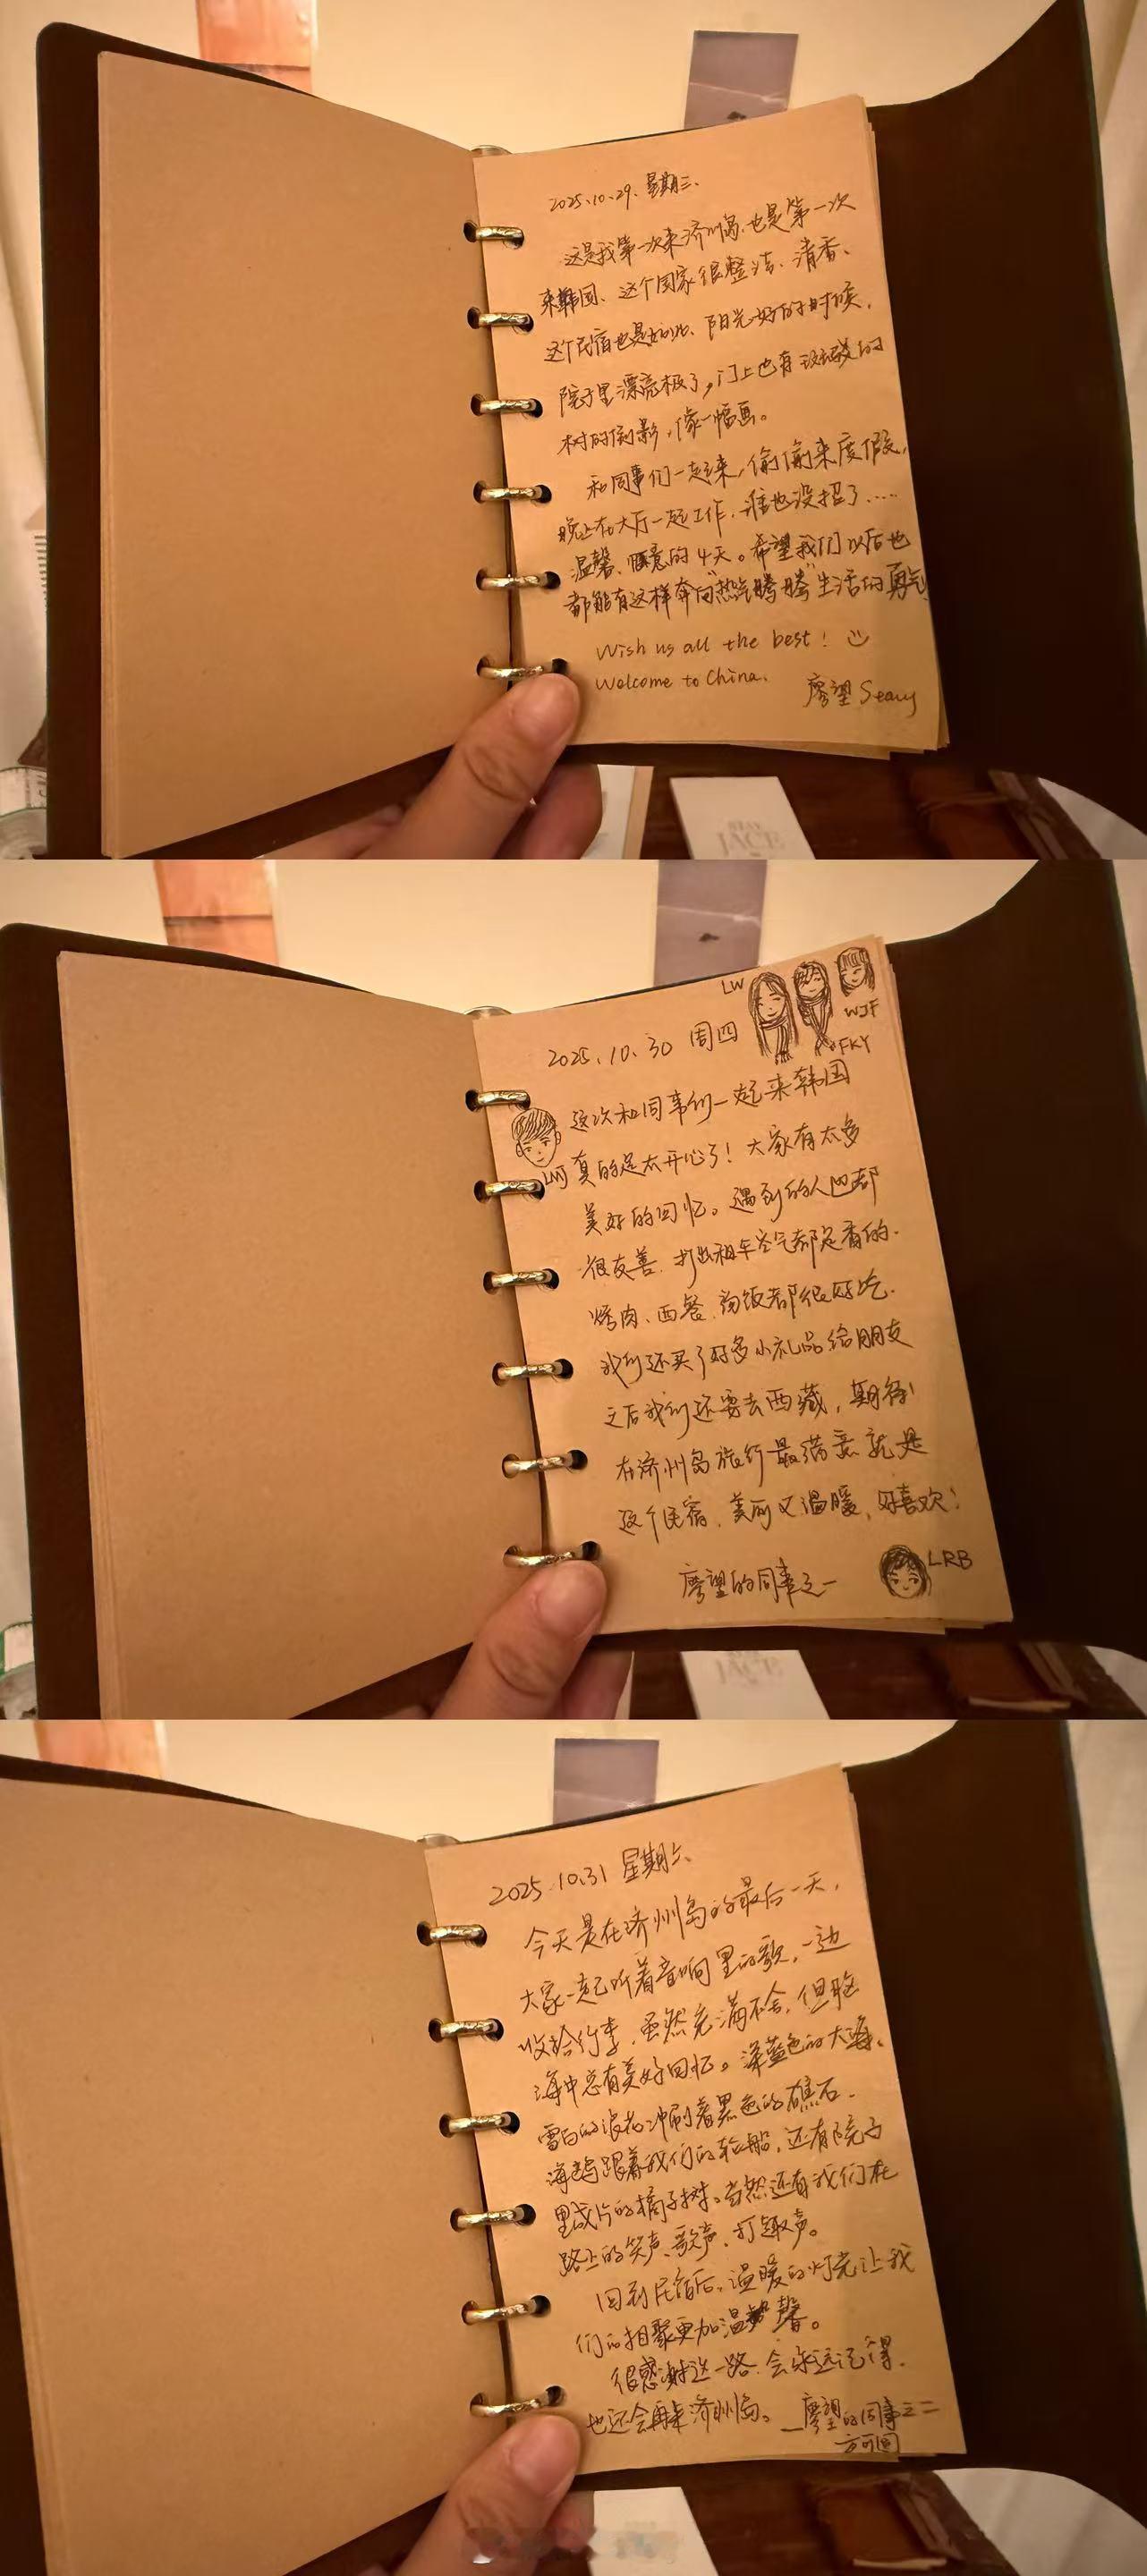 2025.10.29. 星期三.
这是我第一次来济州岛.也是第一次
来韩国、这个国家很整洁、清香、
这个民宿也是如此、阳光好的时候,
院子里漂亮极了,门上也有玻璃的
树的倒影,像一幅画。
和同事们一起来,偷偷来度假,
晚上在大厅一起工作.谁也没招了……
温馨、惬意的4天。希望我们以后也
都能有这样奔向"热气腾腾"生活的勇气!
Wish us all the best!
Welcome to China.
廖望
STAY
JACE
LW
WJF
2025.10.30 周四
FKY
这次和同事们一起来韩国
LWJ
真的是太开心了!大家有太多
美好的回忆。遇到的人也都
很友善.打出租车空气都是香的.
烤肉、西餐、汤饭都很好吃.
我们还买了好多小礼品给朋友
之后我们还要去西藏,期待!
在济州岛旅行最满意就是
这个民宿.美丽又温暖,好喜欢!
LRB
廖望的同事之一
JACE
2025.10.31 星期六
今天是在济州岛的最后一天,
大家一起听着音响里的歌,一边
收拾行李.虽然充满不舍,但脑
海中总有美好回忆。深蓝色的大海、
雪白的浪花冲刷着黑色的礁石.
海鸥跟着我们的轮船,还有院子
里成片的橘子树。当然还有我们在
路上的笑声、歌声、打趣声。
回到民宿后,温暖的灯光让我
们的相聚更加温馨。
很感谢这一路.会永远记得.
也还会再来济州岛。
—廖望的同事之二
方可圆